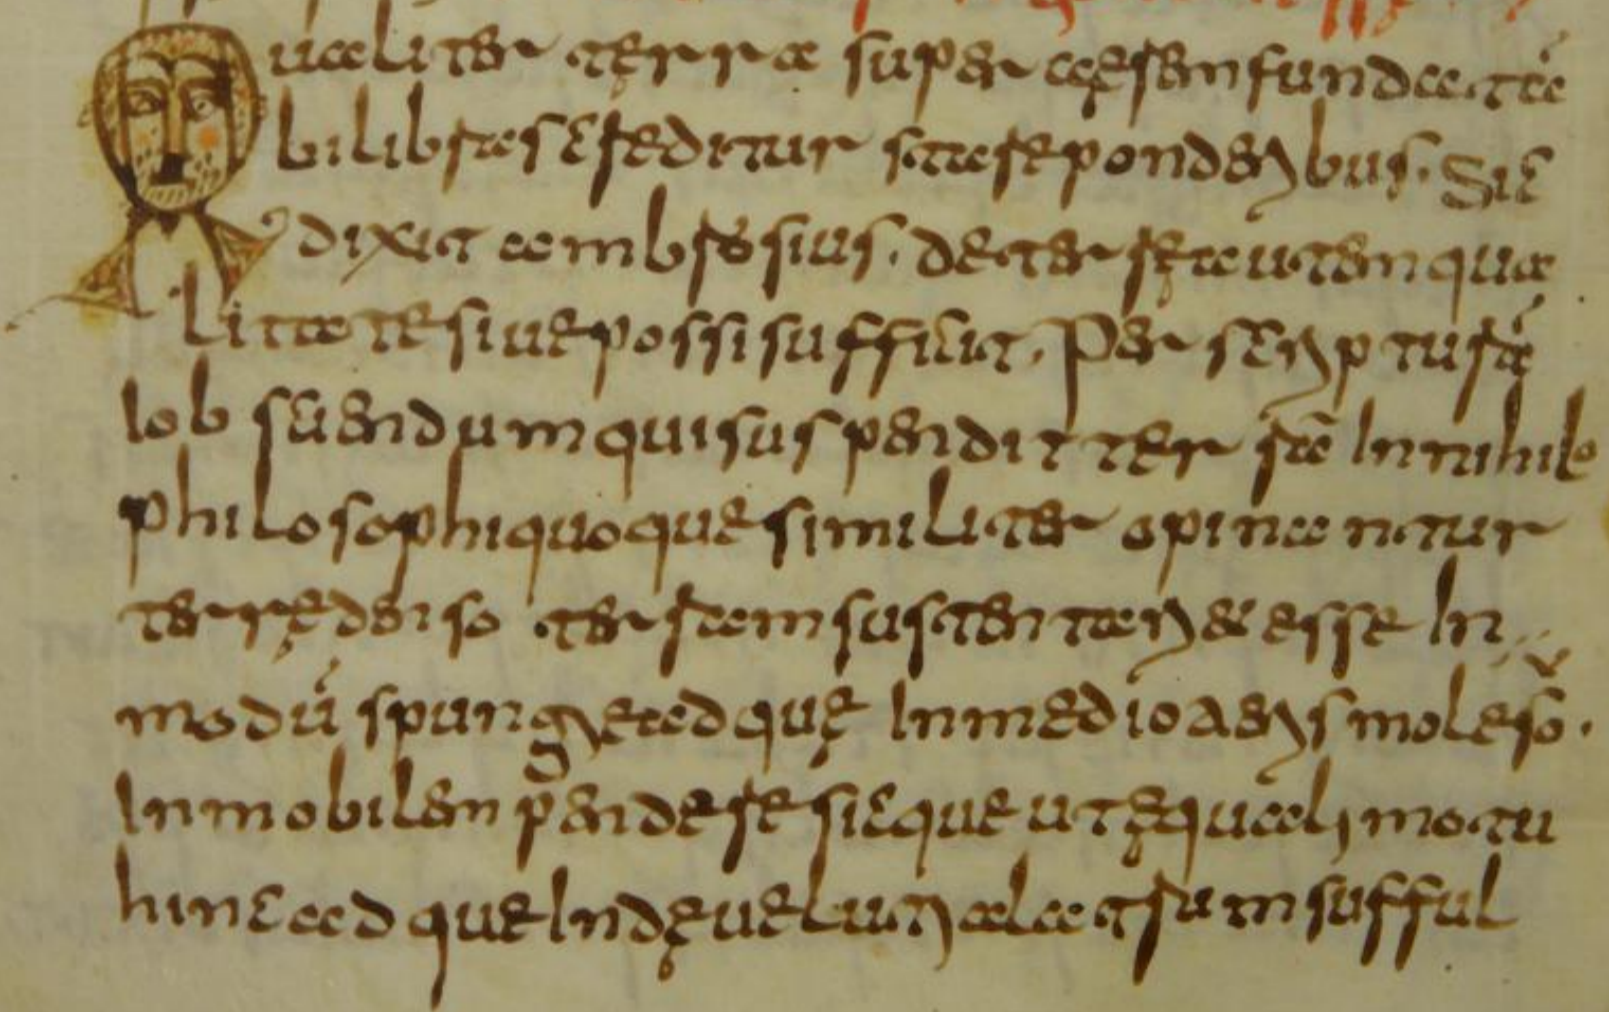 Qualiter tęrra super aęrem fundata
bilibratis creditur stare ponderibus. Sic
dixit ambrosius. de terrę autem qua
litate siue possi sufficit. Per scripturā
Iob sciendum qui suspendit terrā In nihilo
philosophi quoque similiter opinantur
terrę denso terram sustentari & esse In
modū spungie adquę In medio aeris mole sō.
Inmobilem pendere sicque ut ęquali motu
hinc adque Indę uelut sufful